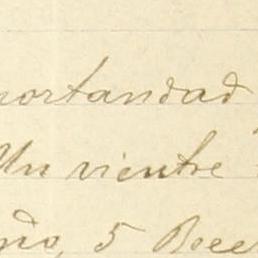 mortandad
Un vientre
ño, 5 Bece